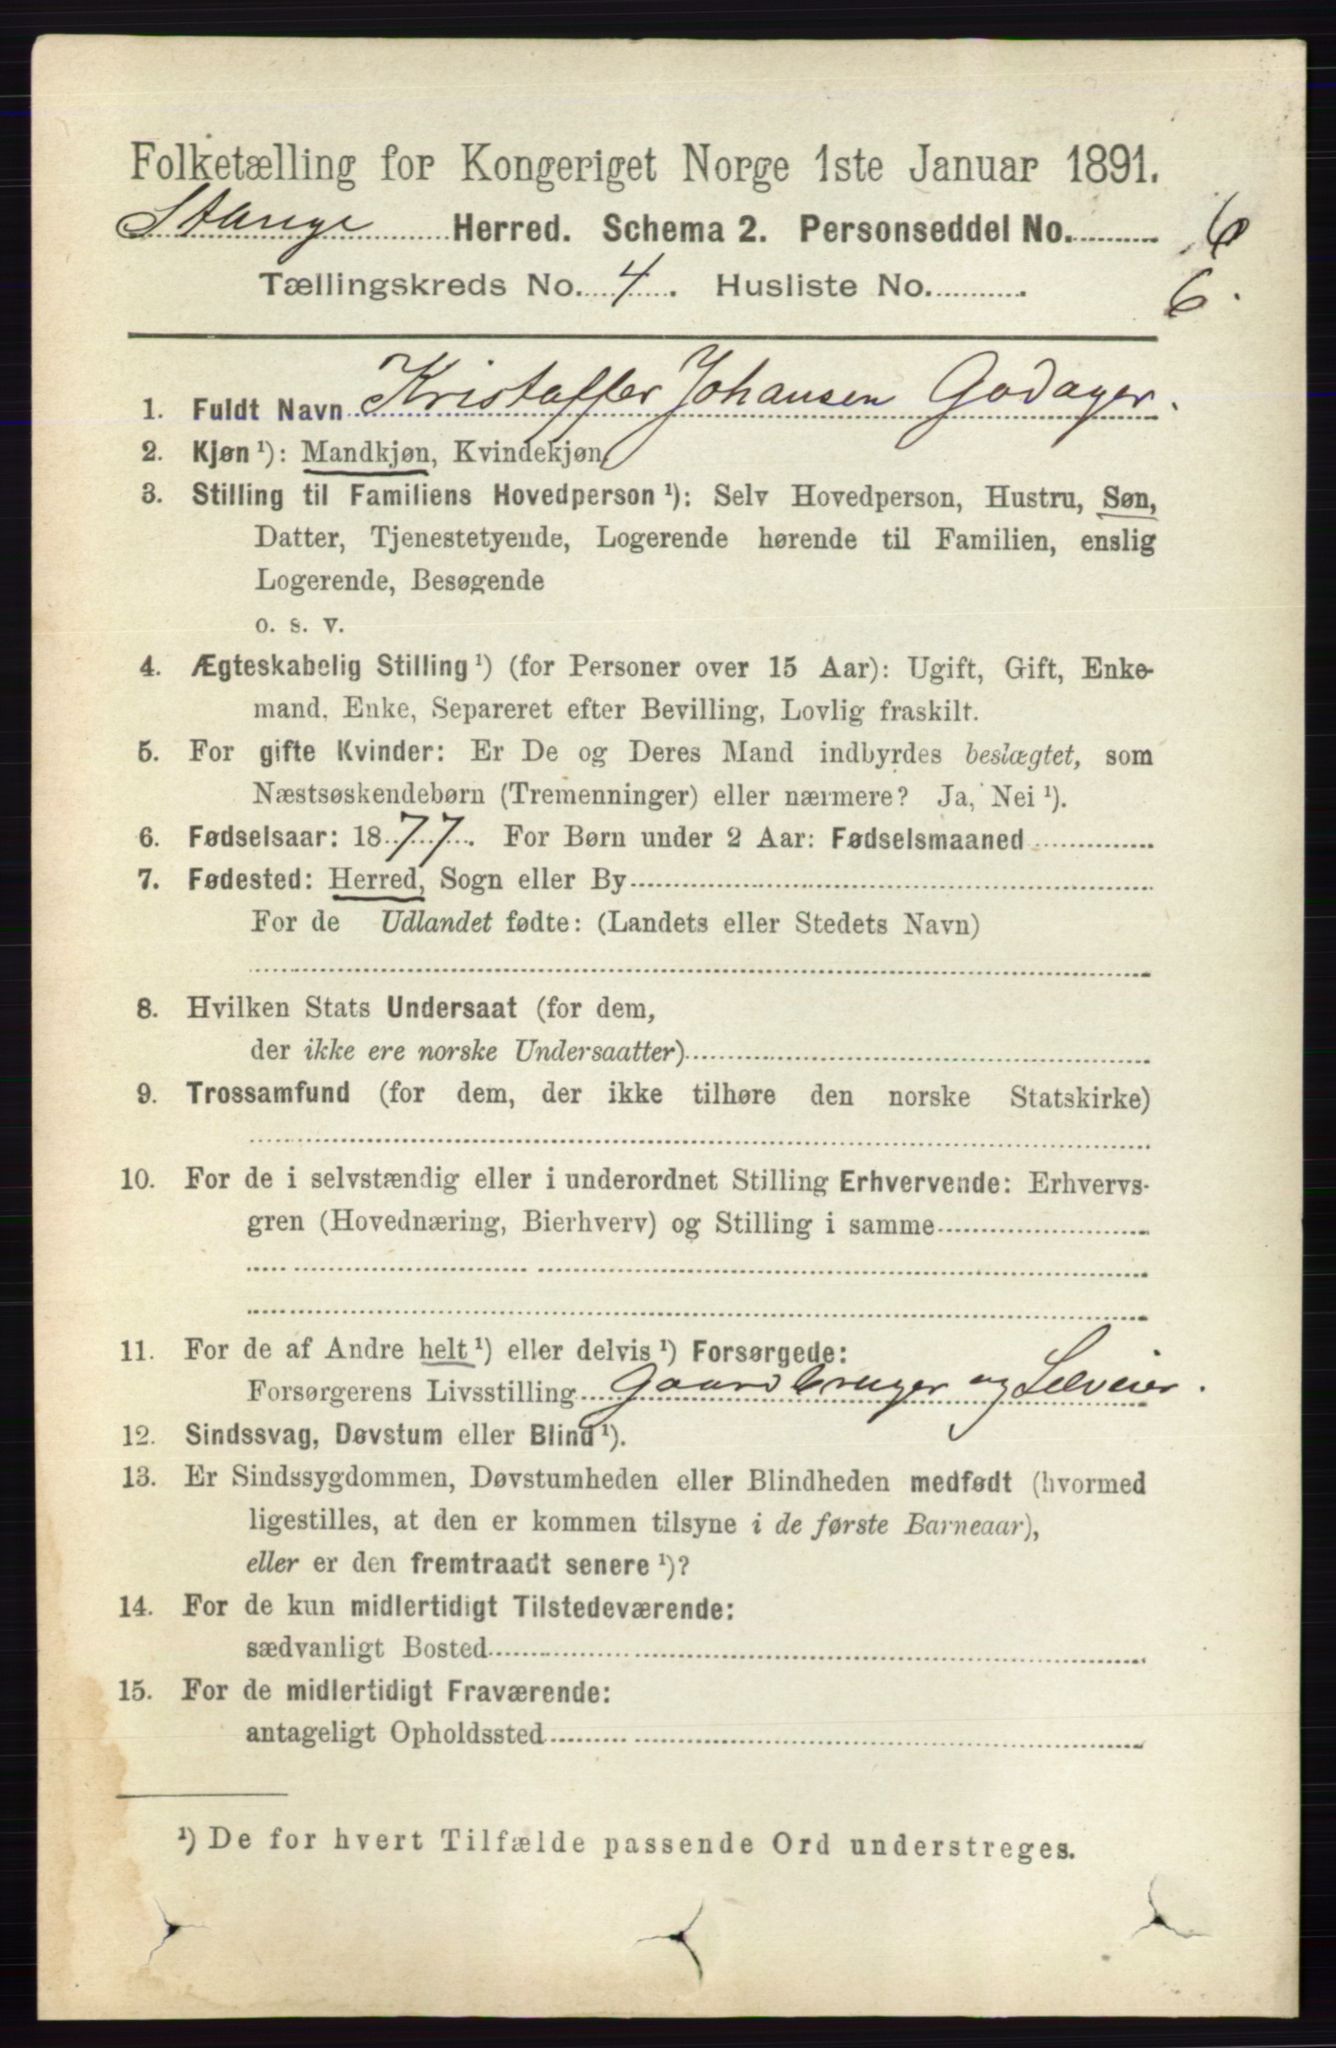 Folketælling for Kongeriget Norge 1ste Januar 1891.
Stange Herred. Schema 2. Personseddel No. 6
Tællingskreds No. 4. Husliste No. 6.
1. Fuldt Navn Kristoffer Johansen Godager.
2. Kjøn¹): Mandkjøn, Kvindekjøn,
3. Stilling til Familiens Hovedperson¹): Selv Hovedperson, Hustru, Søn,
Datter, Tjenestetyende, Logerende hørende til Familien, enslig
Logerende, Besøgende
o. s. v.
4. Ægteskabelig Stilling¹) (for Personer over 15 Aar): Ugift, Gift, Enke-
mand, Enke, Separeret efter Bevilling, Lovlig fraskilt.
5. For gifte Kvinder: Er De og Deres Mand indbyrdes beslægtet, som
Næstsøskendebørn (Tremenninger) eller nærmere? Ja, Nei¹).
6. Fødselsaar: 1877. For Børn under 2 Aar: Fødselsmaaned
7. Fødested: Herred, Sogn eller By
For de Udlandet fødte: (Landets eller Stedets Navn)
8. Hvilken Stats Undersaat (for dem,
der ikke ere norske Undersaatter)
9. Trossamfund (for dem, der ikke tilhøre den norske Statskirke)
10. For de i selvstændig eller i underordnet Stilling Erhvervende: Erhvervs-
gren (Hovednæring, Bierhverv) og Stilling i samme
11. For de af Andre helt¹) eller delvis¹) Forsørgede:
Forsørgerens Livsstilling Gaardbruger og Selveier.
12. Sindssvag, Døvstum eller Blind¹).
13. Er Sindssygdommen, Døvstumheden eller Blindheden medfødt (hvormed
ligestilles, at den er kommen tilsyne i de første Barneaar),
eller er den fremtraadt senere¹)?
14. For de kun midlertidigt Tilstedeværende:
sædvanligt Bosted
15. For de midlertidigt Fraværende:
antageligt Opholdssted
¹) De for hvert Tilfælde passende Ord understreges.